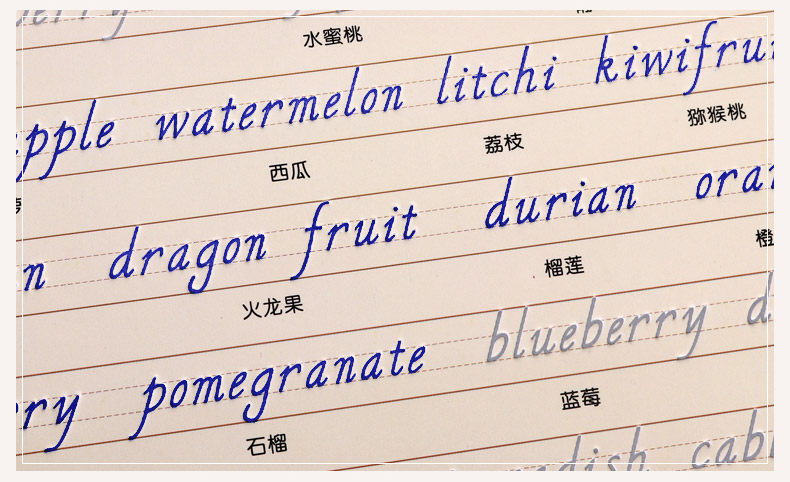 水蜜桃
pple watermelon litchi kiwifrui
西瓜 荔枝 猕猴桃
n dragon fruit durian oran
火龙果 榴莲 橙
rry pomegranate blueberry d
石榴 蓝莓
radish cabb